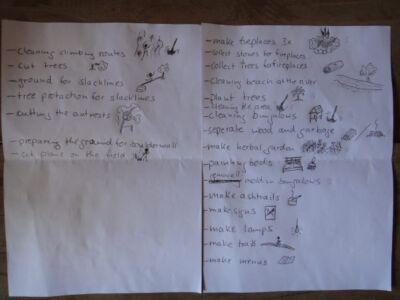 - cleaning climbing routes
- cut trees
- ground for slacklines
- tree protaction for slacklines
- cutting the
- preparing the ground for boulderwall
- cut plants on the field
- make fireplaces 3x
- collect stones for fireplaces
- collect trees for fireplaces
- cleaning beach at the river
- plant trees
cleaning the area
- cleaning bungalows
- seperate wood and garbage
- make herbal garden
- painting beds
- mold in bungalows
- make ashtrails
- make signs
- make lamps
- make trails
- make menus